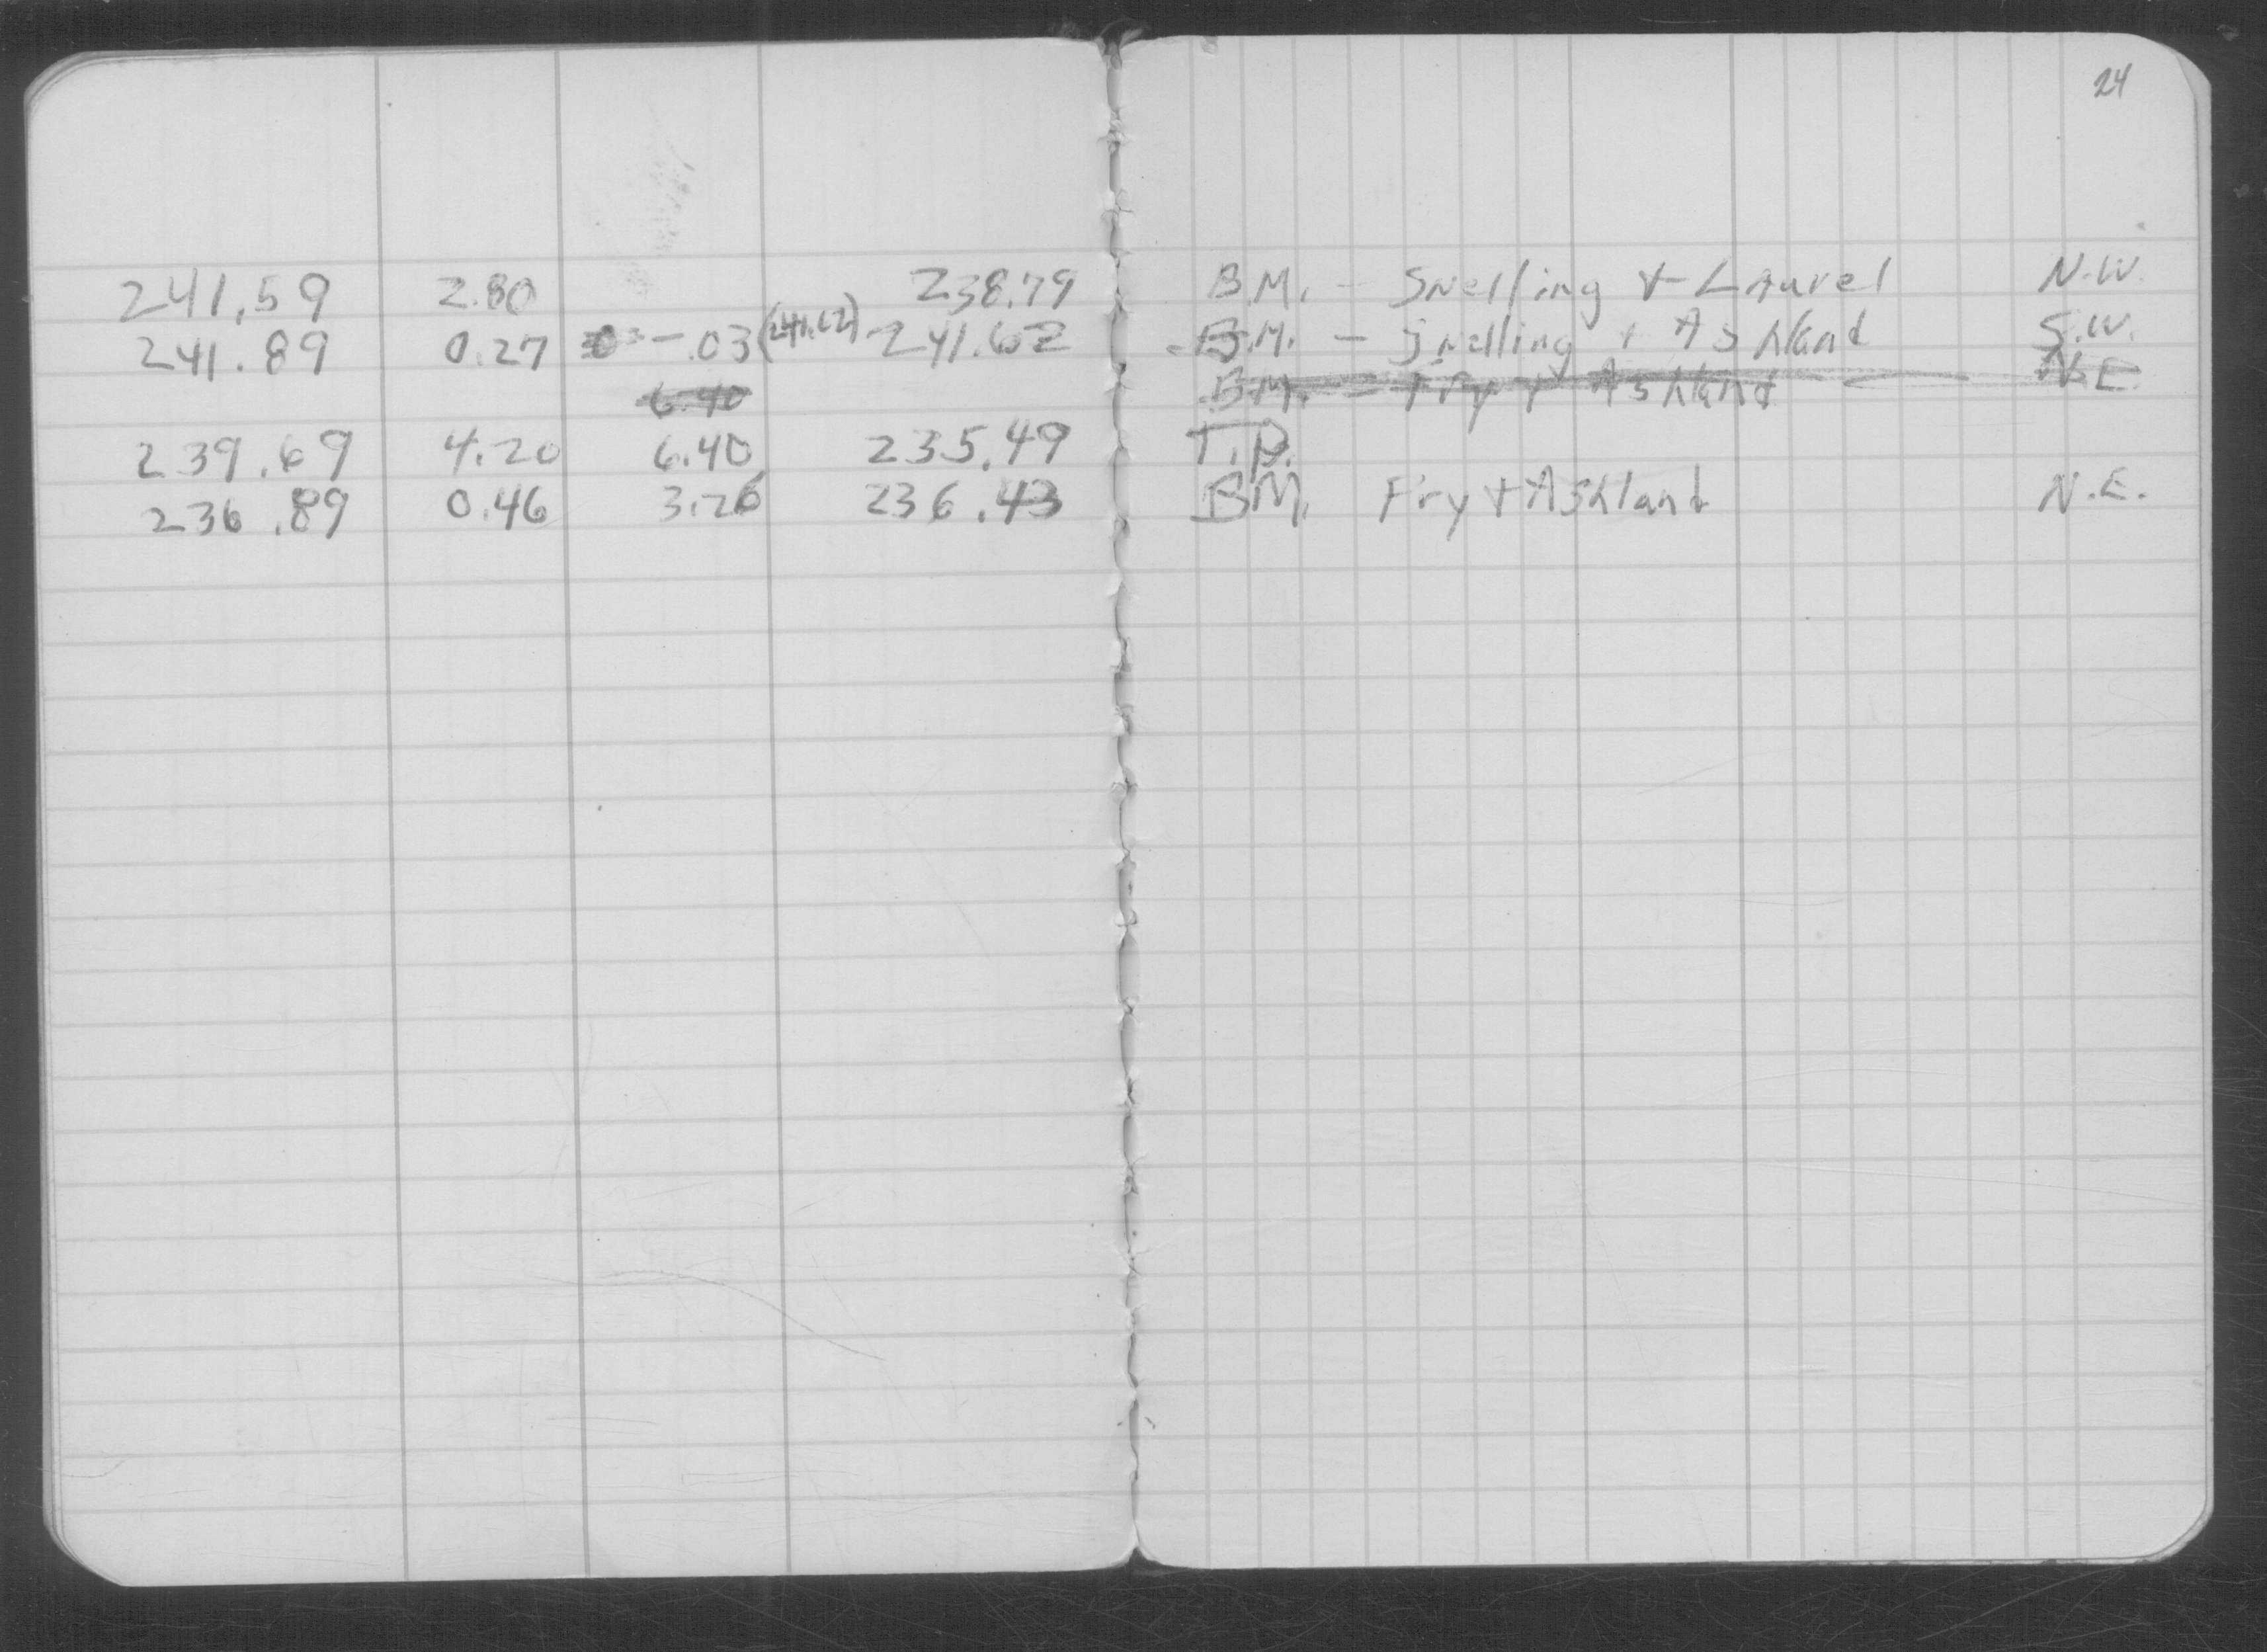 24
241.59 2.80 238.79 B.M. - Snelling + Laurel N.W.
241.89 0.27 -.03 (241.62) 241.62 B.M. - Snelling + Ashland S.W.
6.40 B.M. - Fry + Ashland - N.E.
239.69 4.20 6.40 235.49 T.P.
236.89 0.46 3.26 236.43 B.M. Fry + Ashland N.E.